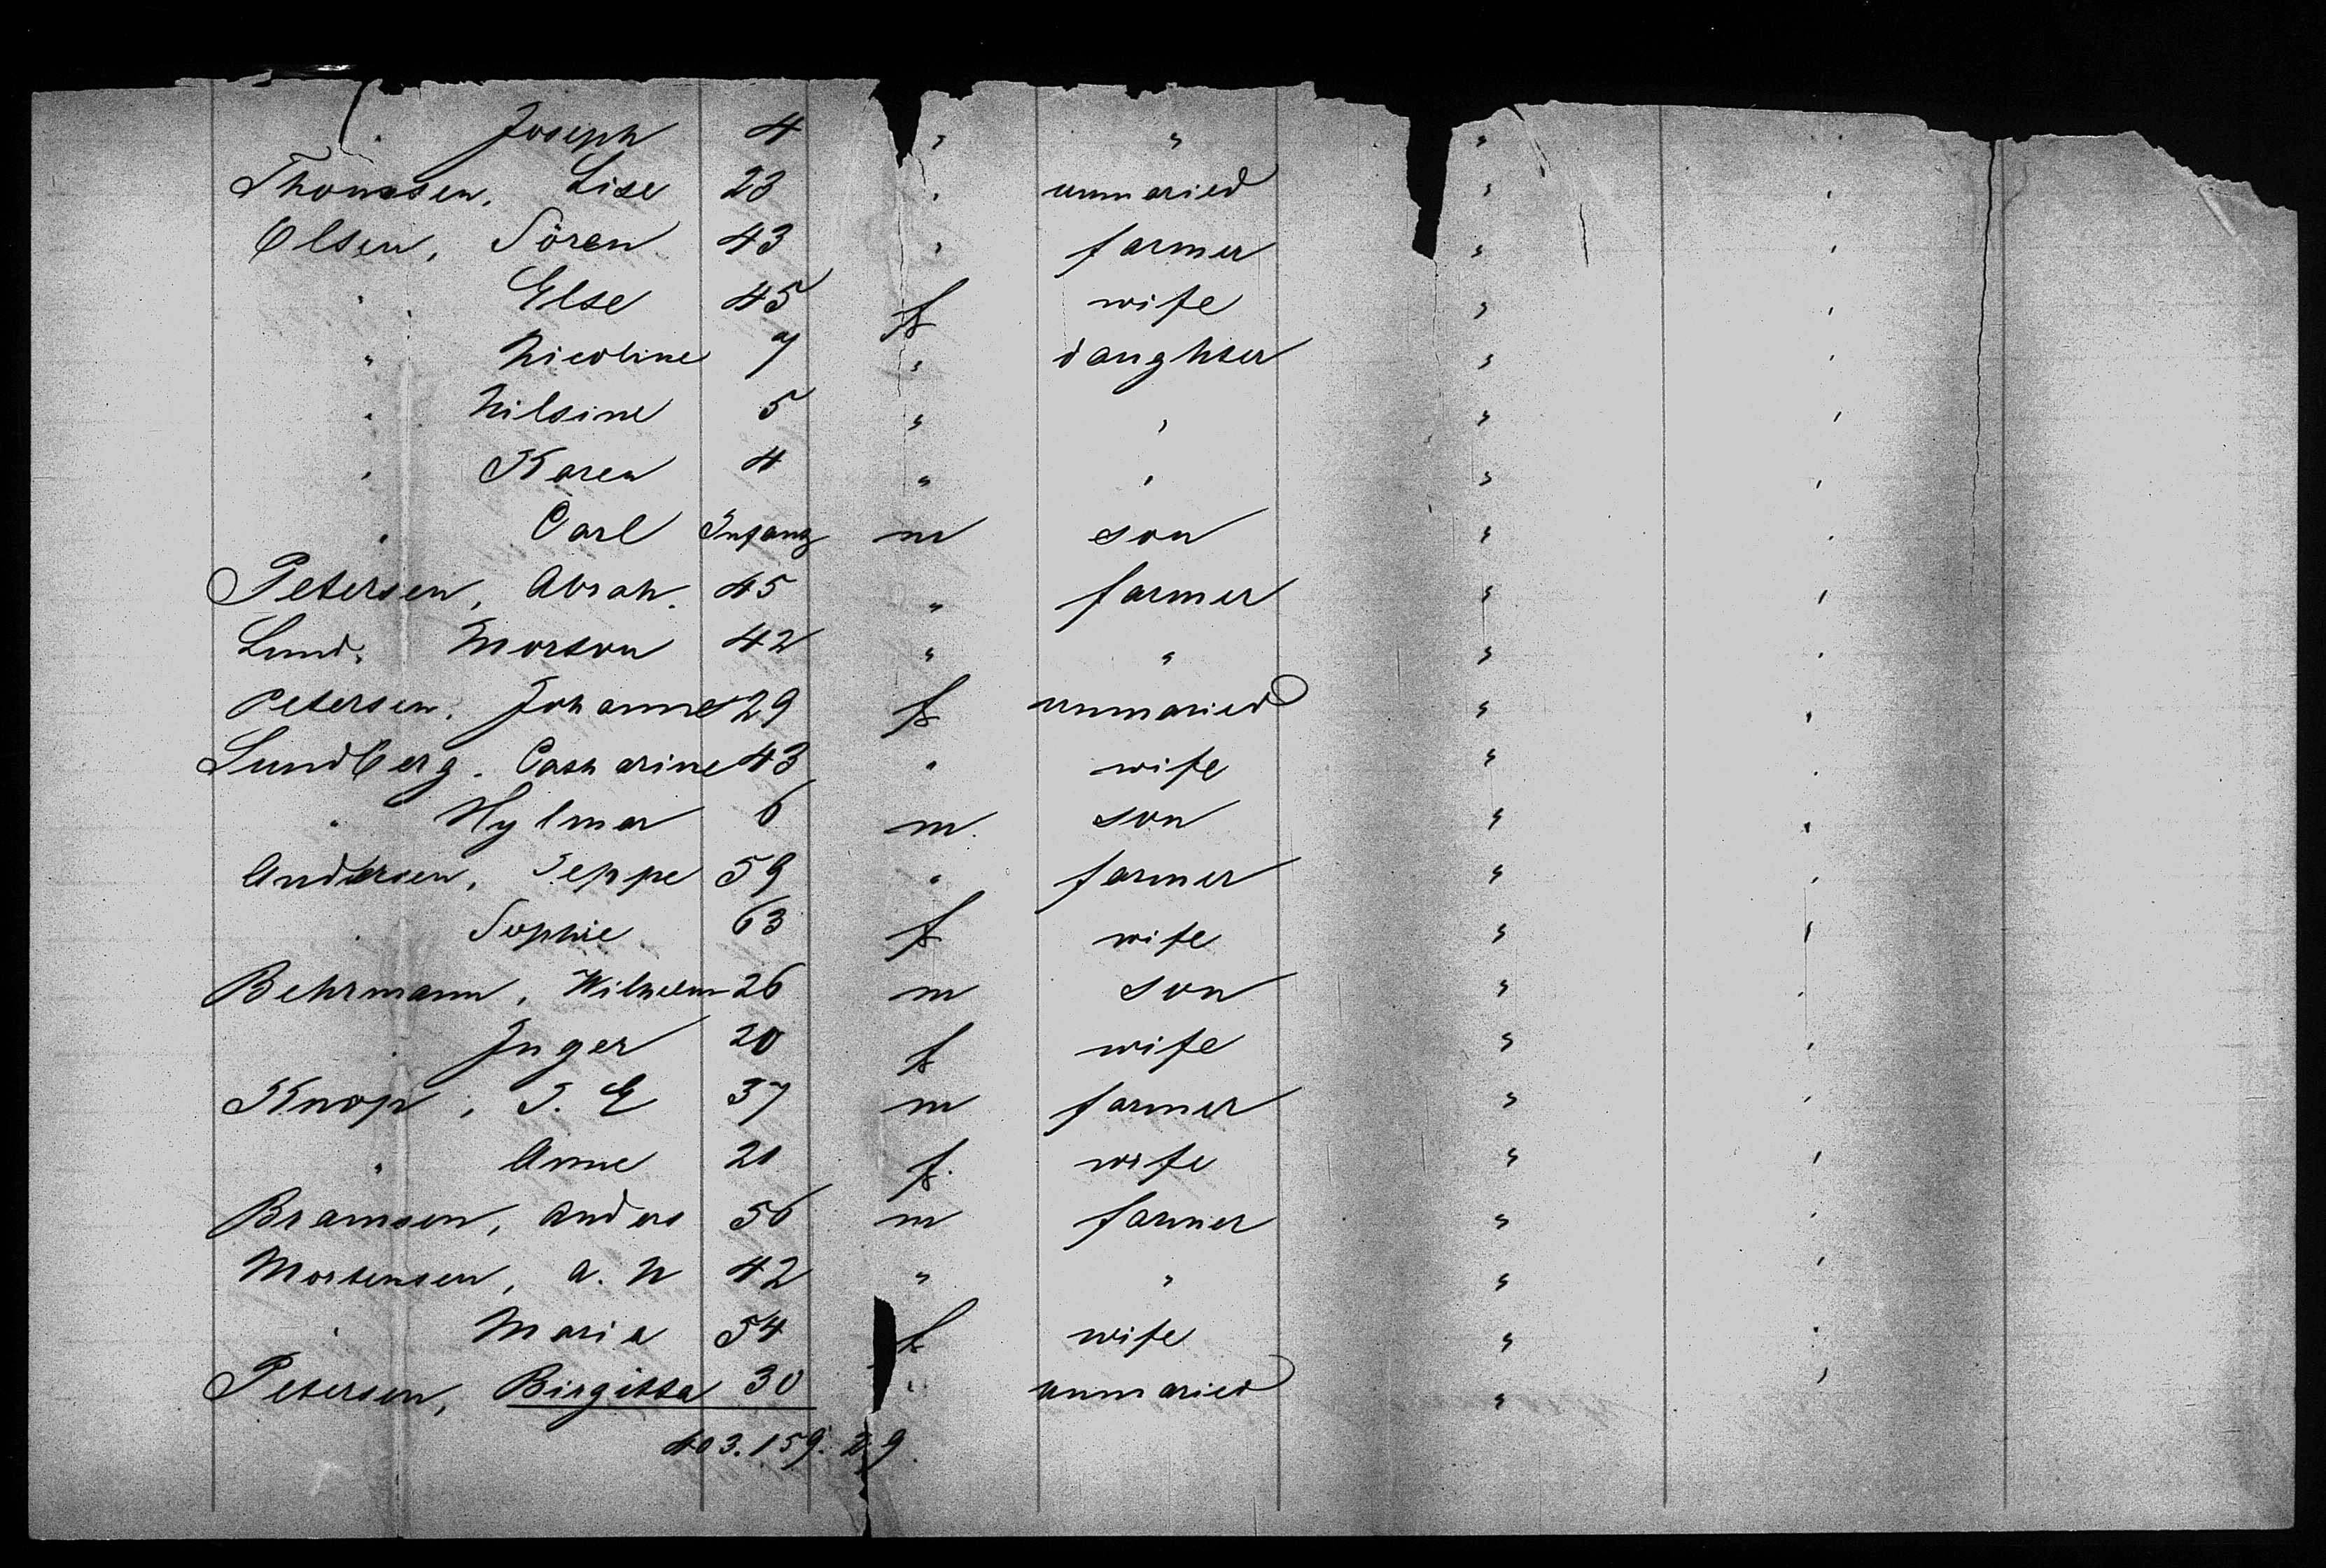 " Joseph 4 " " " "
Thomasen, Lise 23 " unmaried " "
Olsen, Sören 43 " farmer " "
" Else 45 f wife " "
" Nicoline 7 " daughter " "
" Nilsine 5 " " " "
" Karen 4 " " " "
" Carl Infant m son " "
Petersen, Abrah. 45 " farmer " "
Lund, Morton 42 " " " "
Petersen, Johanne 29 f unmaried " "
Lundberg, Catharine 43 " wife " "
" Hylmar 6 m. son " "
Andersen, Jeppe 59 " farmer " "
" Sophie 63 f wife " "
Behrmann, Wilhelm 26 m son " "
" Inger 20 f wife " "
Knop, J. E 37 m farmer " "
" Anne 21 f. wife " "
Bramsen, Anders 56 m farmer " "
Mortensen, A. N 42 " " " "
" Maria 54 f wife " "
Petersen, Birgitta 30 " unmaried " "
403. 159. 29.